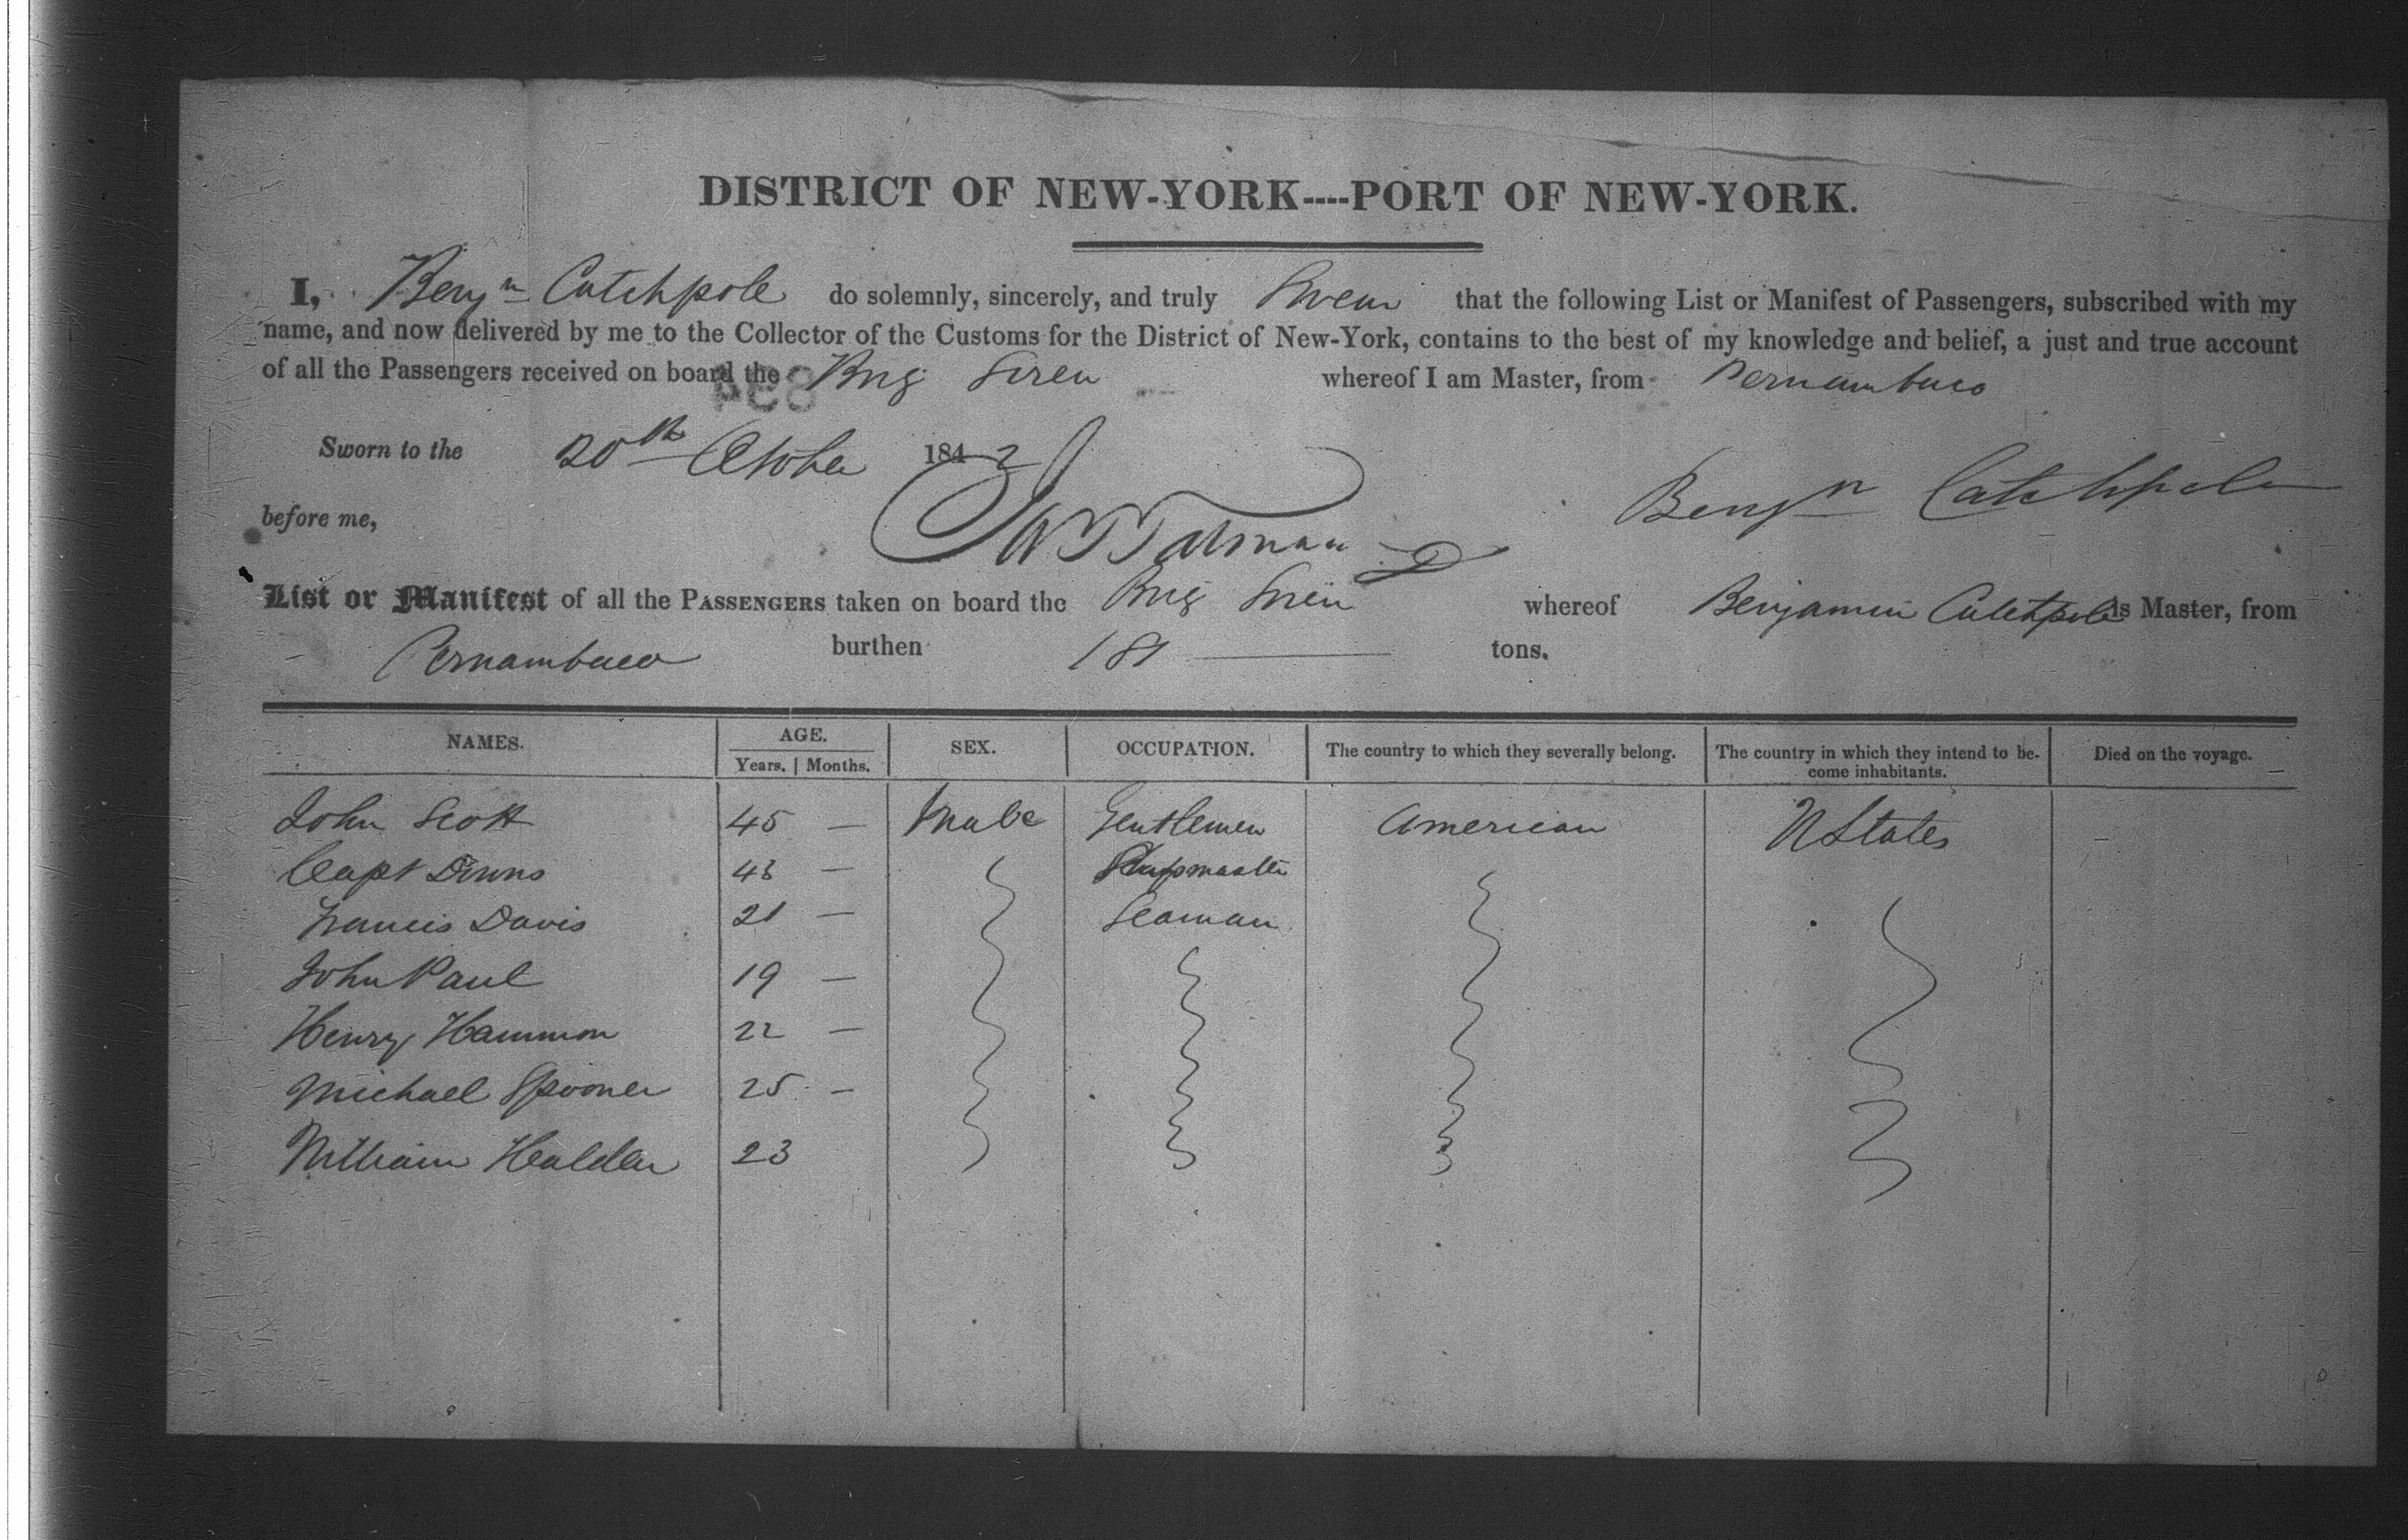 DISTRICT OF NEW-YORK----PORT OF NEW-YORK.
I, Benjn Catchpole do solemnly, sincerely, and truly Swear that the following List or Manifest of Passengers, subscribed with my
name, and now delivered by me to the Collector of the Customs for the District of New-York, contains to the best of my knowledge and belief, a just and true account
of all the Passengers received on board the Brig Siren whereof I am Master, from Pernambuco
Sworn to the 20th October 1842
before me, Benjn Catchpole
List or Manifest of all the PASSENGERS taken on board the Brig Siren whereof Benjamin Catchpole is Master, from
Pernambuco burthen 181 tons.
NAMES. AGE. Years. | Months. SEX. OCCUPATION. The country to which they severally belong. The country in which they intend to become inhabitants. Died on the voyage.
John Scott 45 — Male Gentlemen American UStates
Capt 43 — Shipmaster
Francis Davis 21 — Seaman
John Paul 19 —
Henry Hammon 22 —
Michael Spooner 25 —
William Halden 23